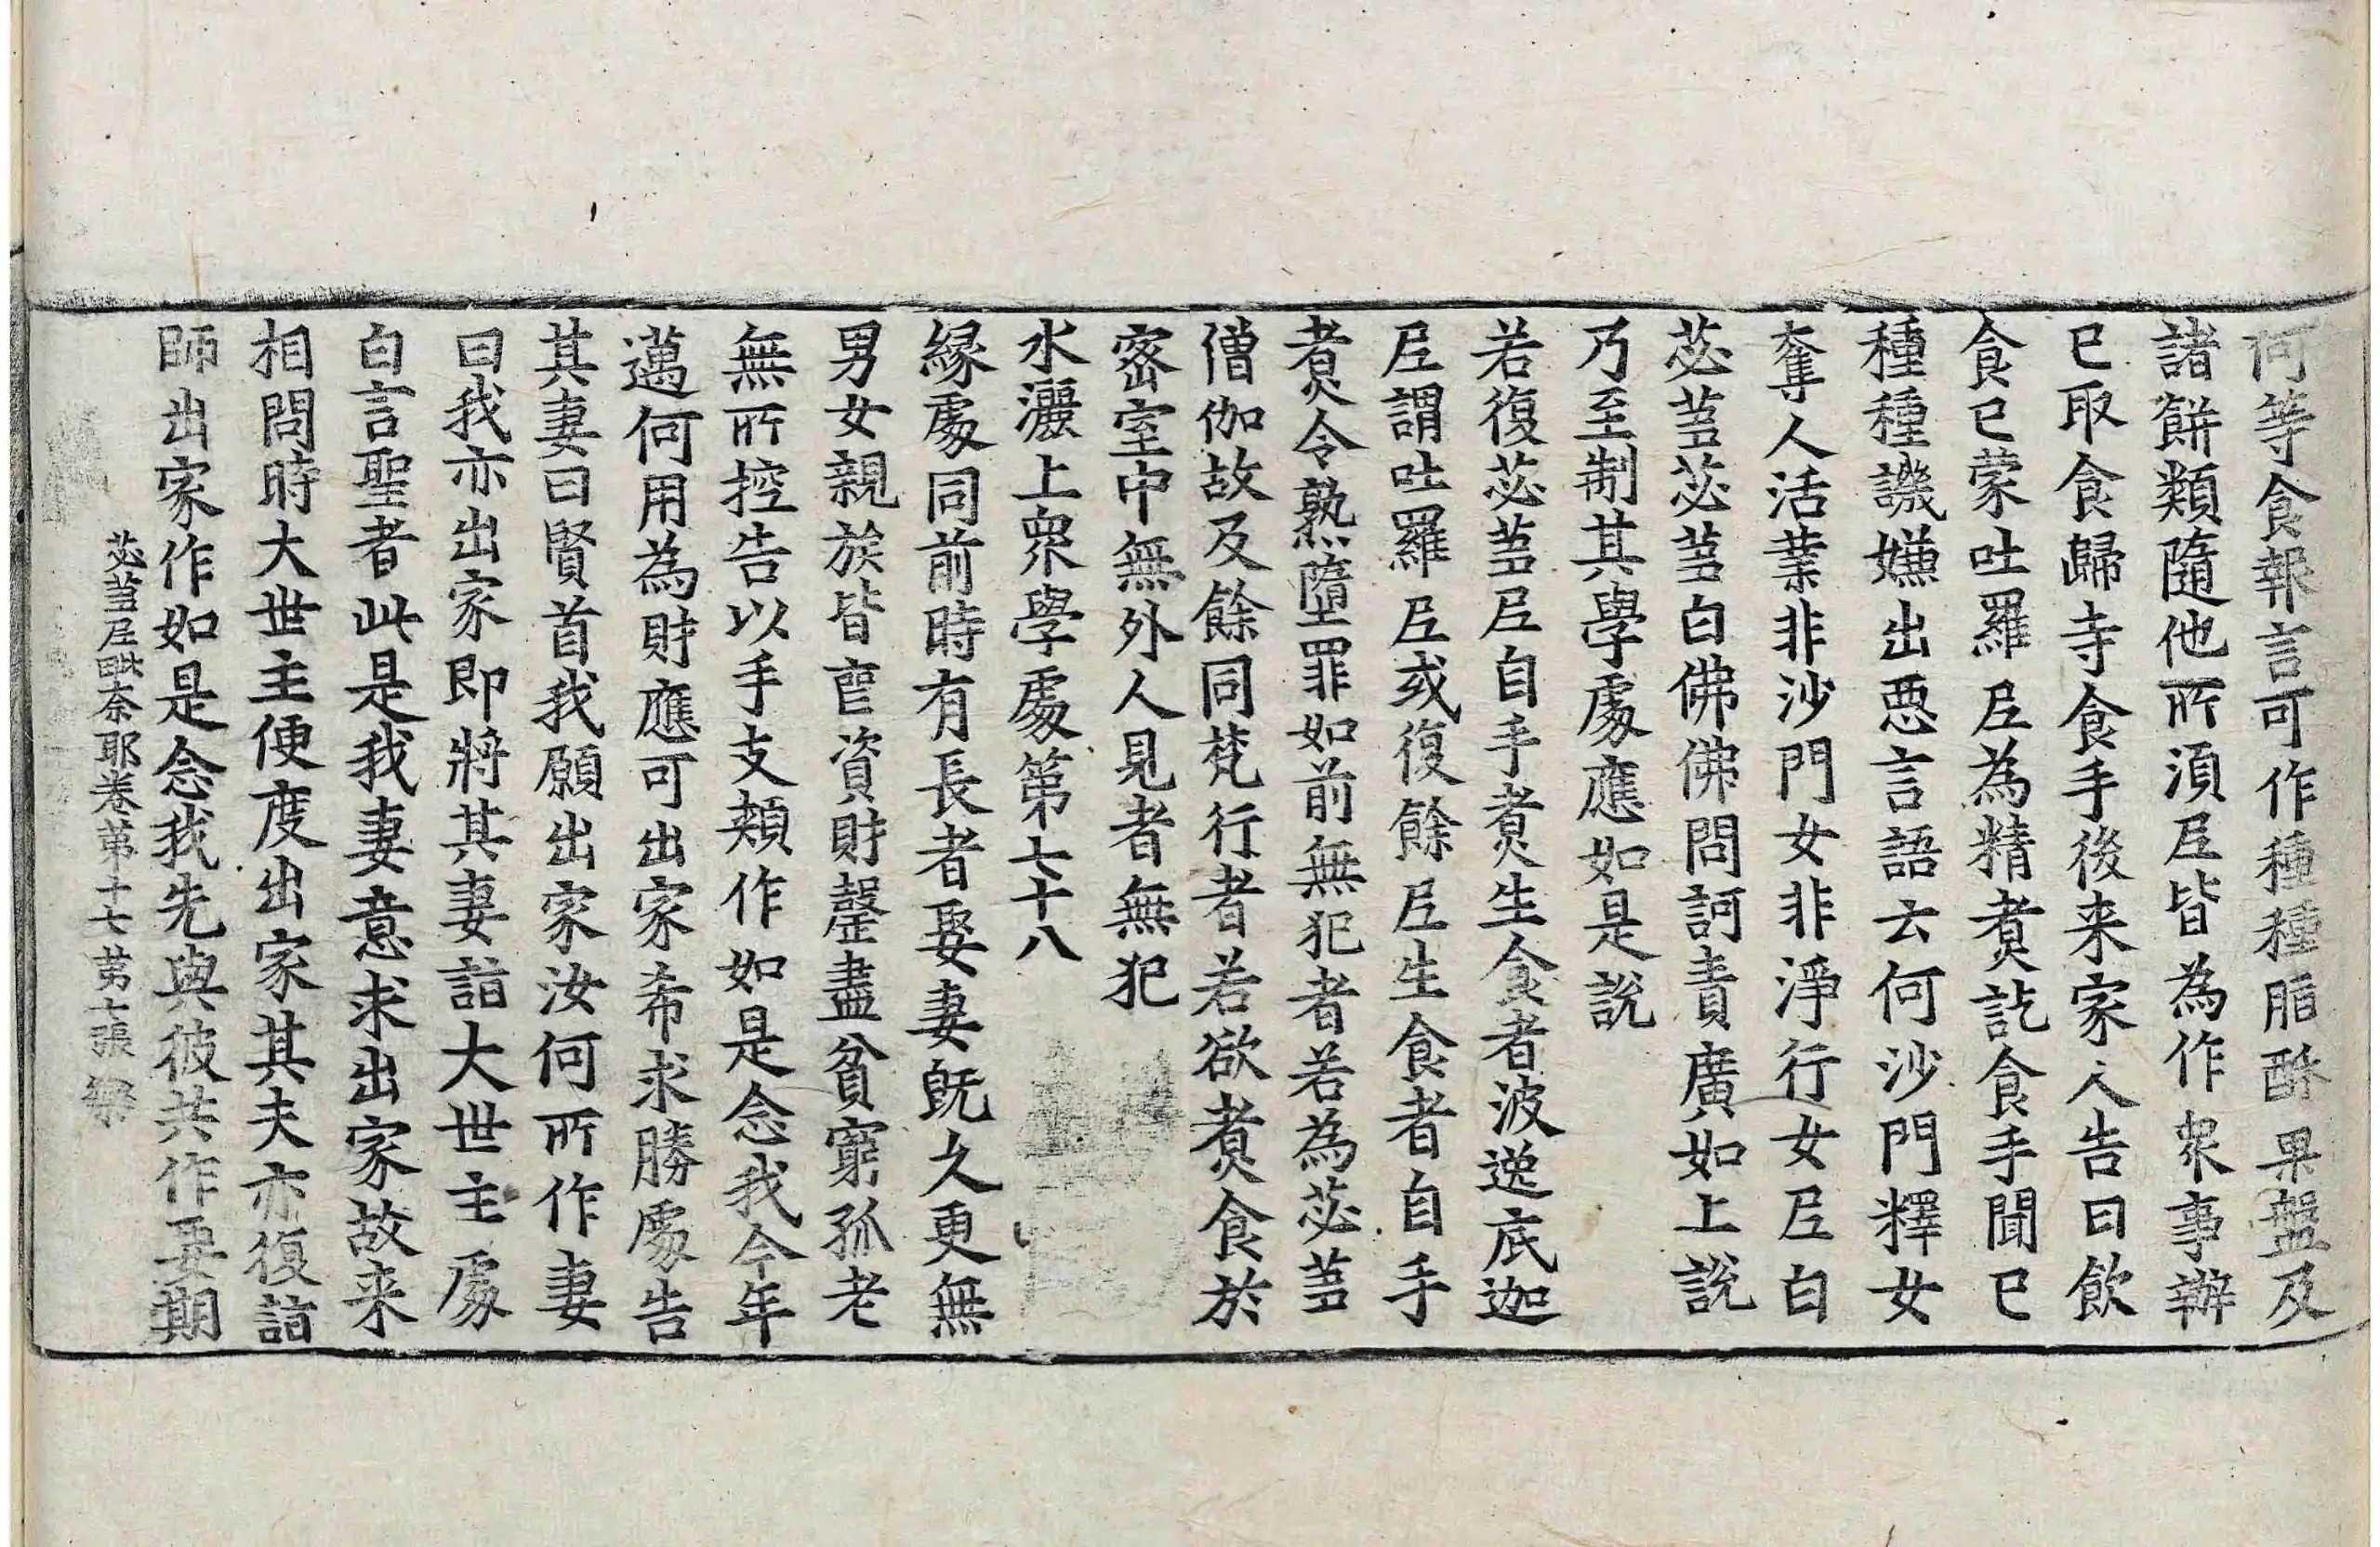 何等食報言可作種種脂酥果盤及
諸餅類隨他所湏𡰱皆為作衆事辦
已取食歸寺食手後来家人告曰飲
食已蒙吐羅𡰱為精煑訖食手聞已
種種譏嫌出惡言語云何沙門釋女
奪人活業非沙門女非淨行女𡰱白
苾蒭苾蒭白佛佛問訶責廣如上說
乃至制其學處應如是說
若復苾蒭𡰱自手煑生食者波逸底迦
𡰱謂吐羅𡰱或復餘𡰱生食者自手
煑令熟墮罪如前無犯者若為苾蒭
僧伽故及餘同梵行者若欲煑食於
密室中無外人見者無犯
水灑上衆學處第七十八
緣處同前時有長者娶妻既久更無
男女親族皆亡資財罄盡貧窮孤老
無所控告以手支頰作如是念我今年
邁何用為財應可出家希求勝處告
其妻曰賢首我願出家汝何所作妻
曰我亦出家即將其妻詣大世主處
白言聖者此是我妻意求出家故来
相問時大世主便度出家其夫亦復詣
師出家作如是念我先與彼共作要期
苾蒭𡰱毗奈耶卷第十七 第七張